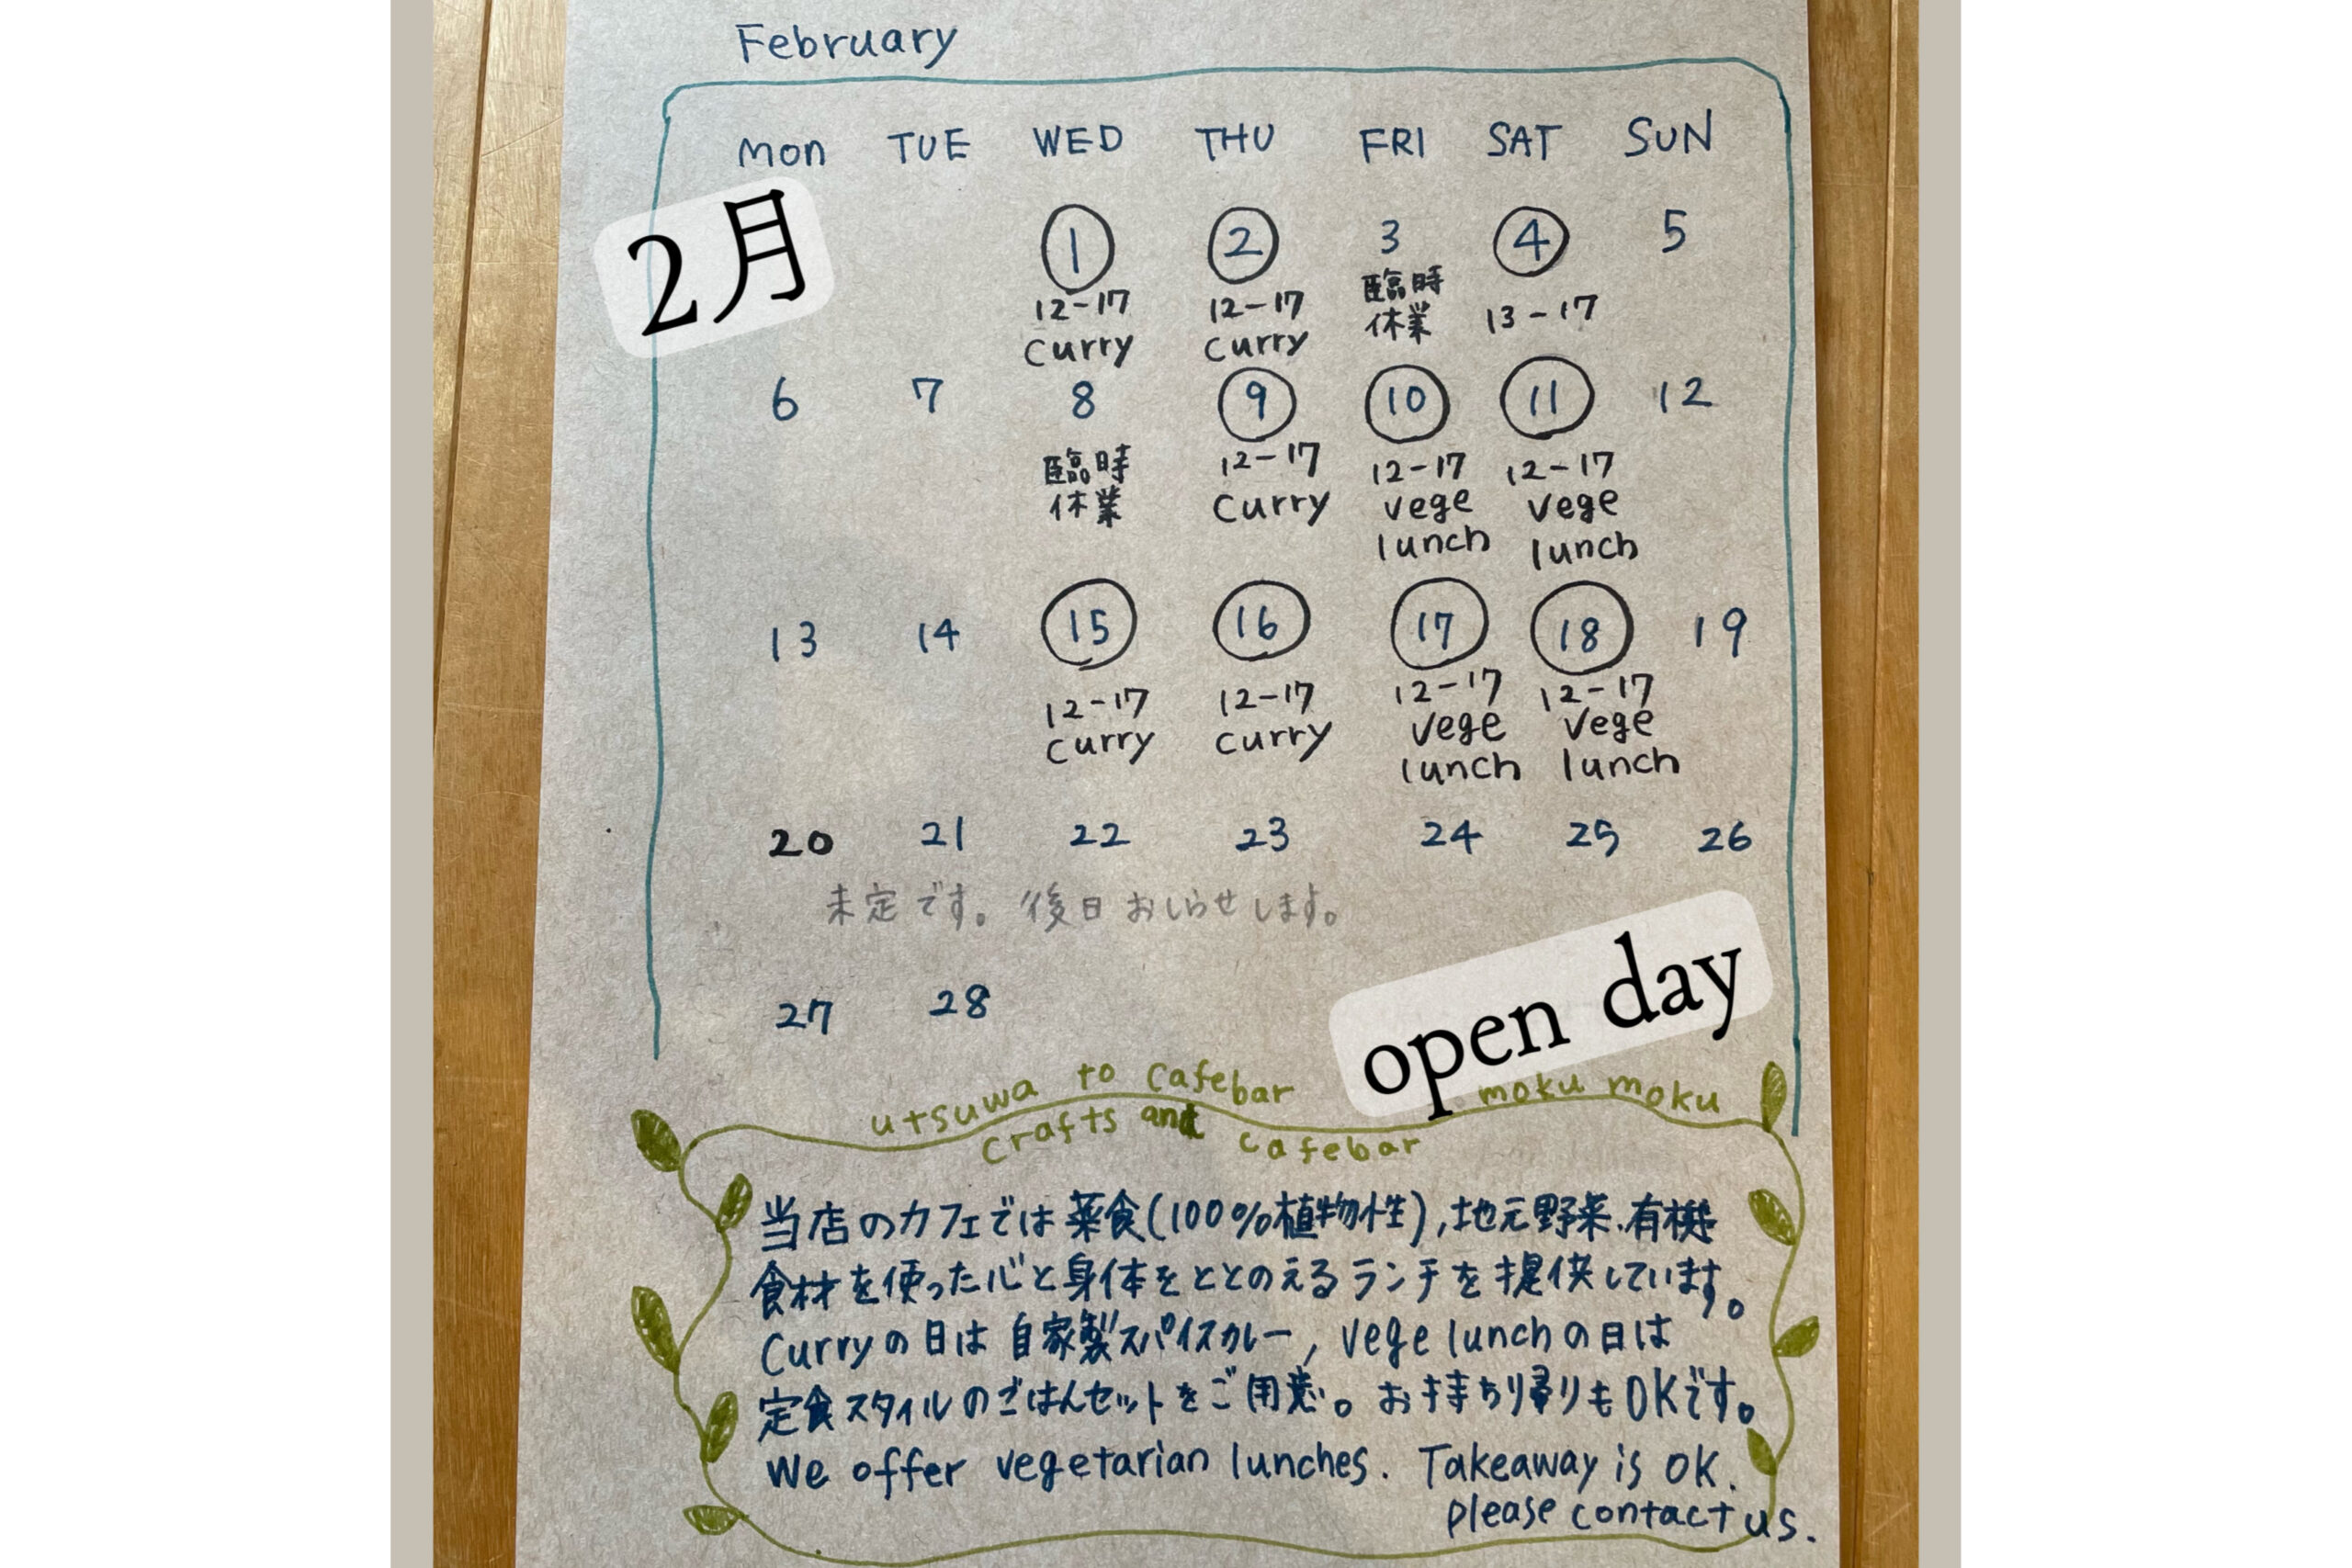 February
Mon TUE WED THU FRI SAT SUN
2月
1 2 3 4 5
12-17 12-17 臨時 13-17
Curry Curry 休業
6 7 8 9 10 11 12
臨時 12-17 12-17 12-17
休業 Curry vege vege
lunch lunch
13 14 15 16 17 18 19
12-17 12-17 12-17 12-17
Curry Curry vege vege
lunch lunch
20 21 22 23 24 25 26
未定です。後日おしらせします。
27 28
open day
utsuwa to cafebar moku moku
crafts and cafebar
当店のカフェでは薬食(100%植物性),地元野菜.有機
食材を使った心と身体をととのえるランチを提供しています。
Curryの日は自家製スパイスカレー, vege lunchの日は
定食スタイルのごはんセットをご用意。お持ち帰りもOKです。
We offer vegetarian lunches. Takeaway is OK.
please contact us.